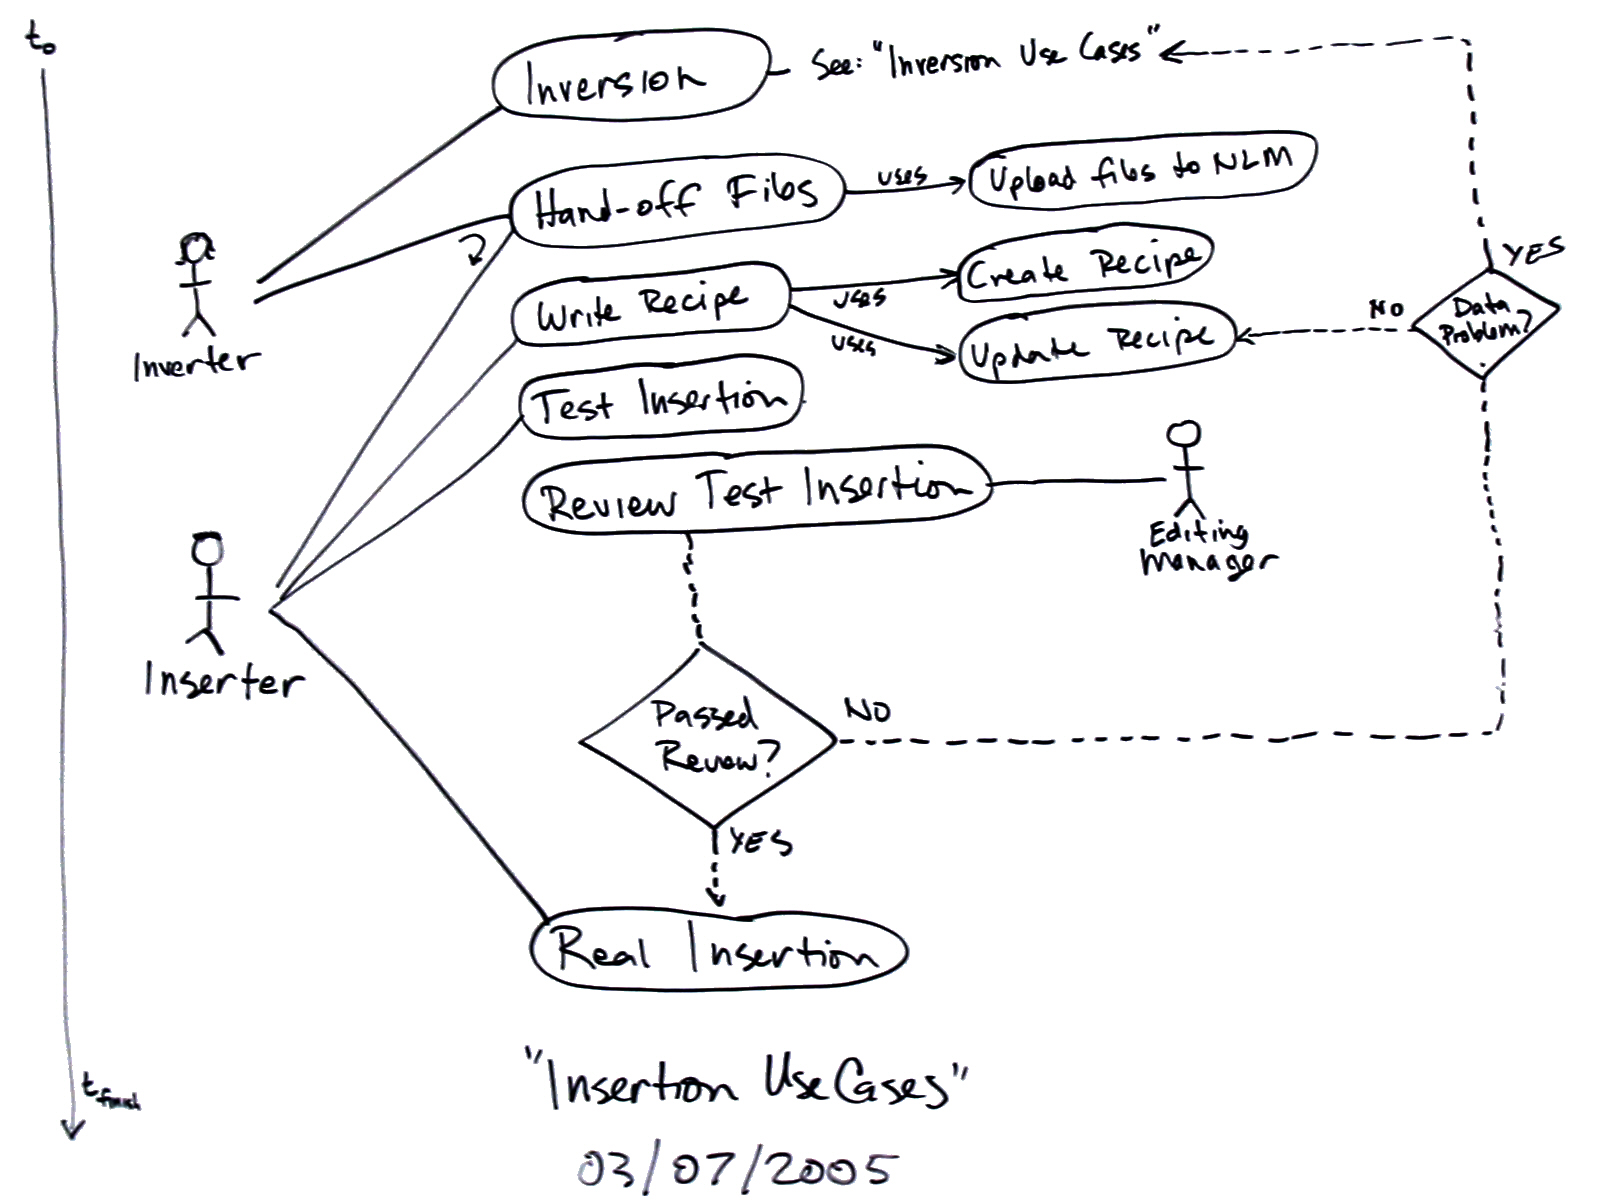 t0
Inversion
See: "Inversion Use Cases"
Hand-off Files
uses
Upload files to NLM
Write Recipe
uses
Create Recipe
uses
Update Recipe
NO
Data
Problem?
YES
Inverter
Test Insertion
Review Test Insertion
Editing
Manager
Inserter
Passed
Review?
NO
YES
Real Insertion
tfinish
"Insertion Use Cases"
03/07/2005